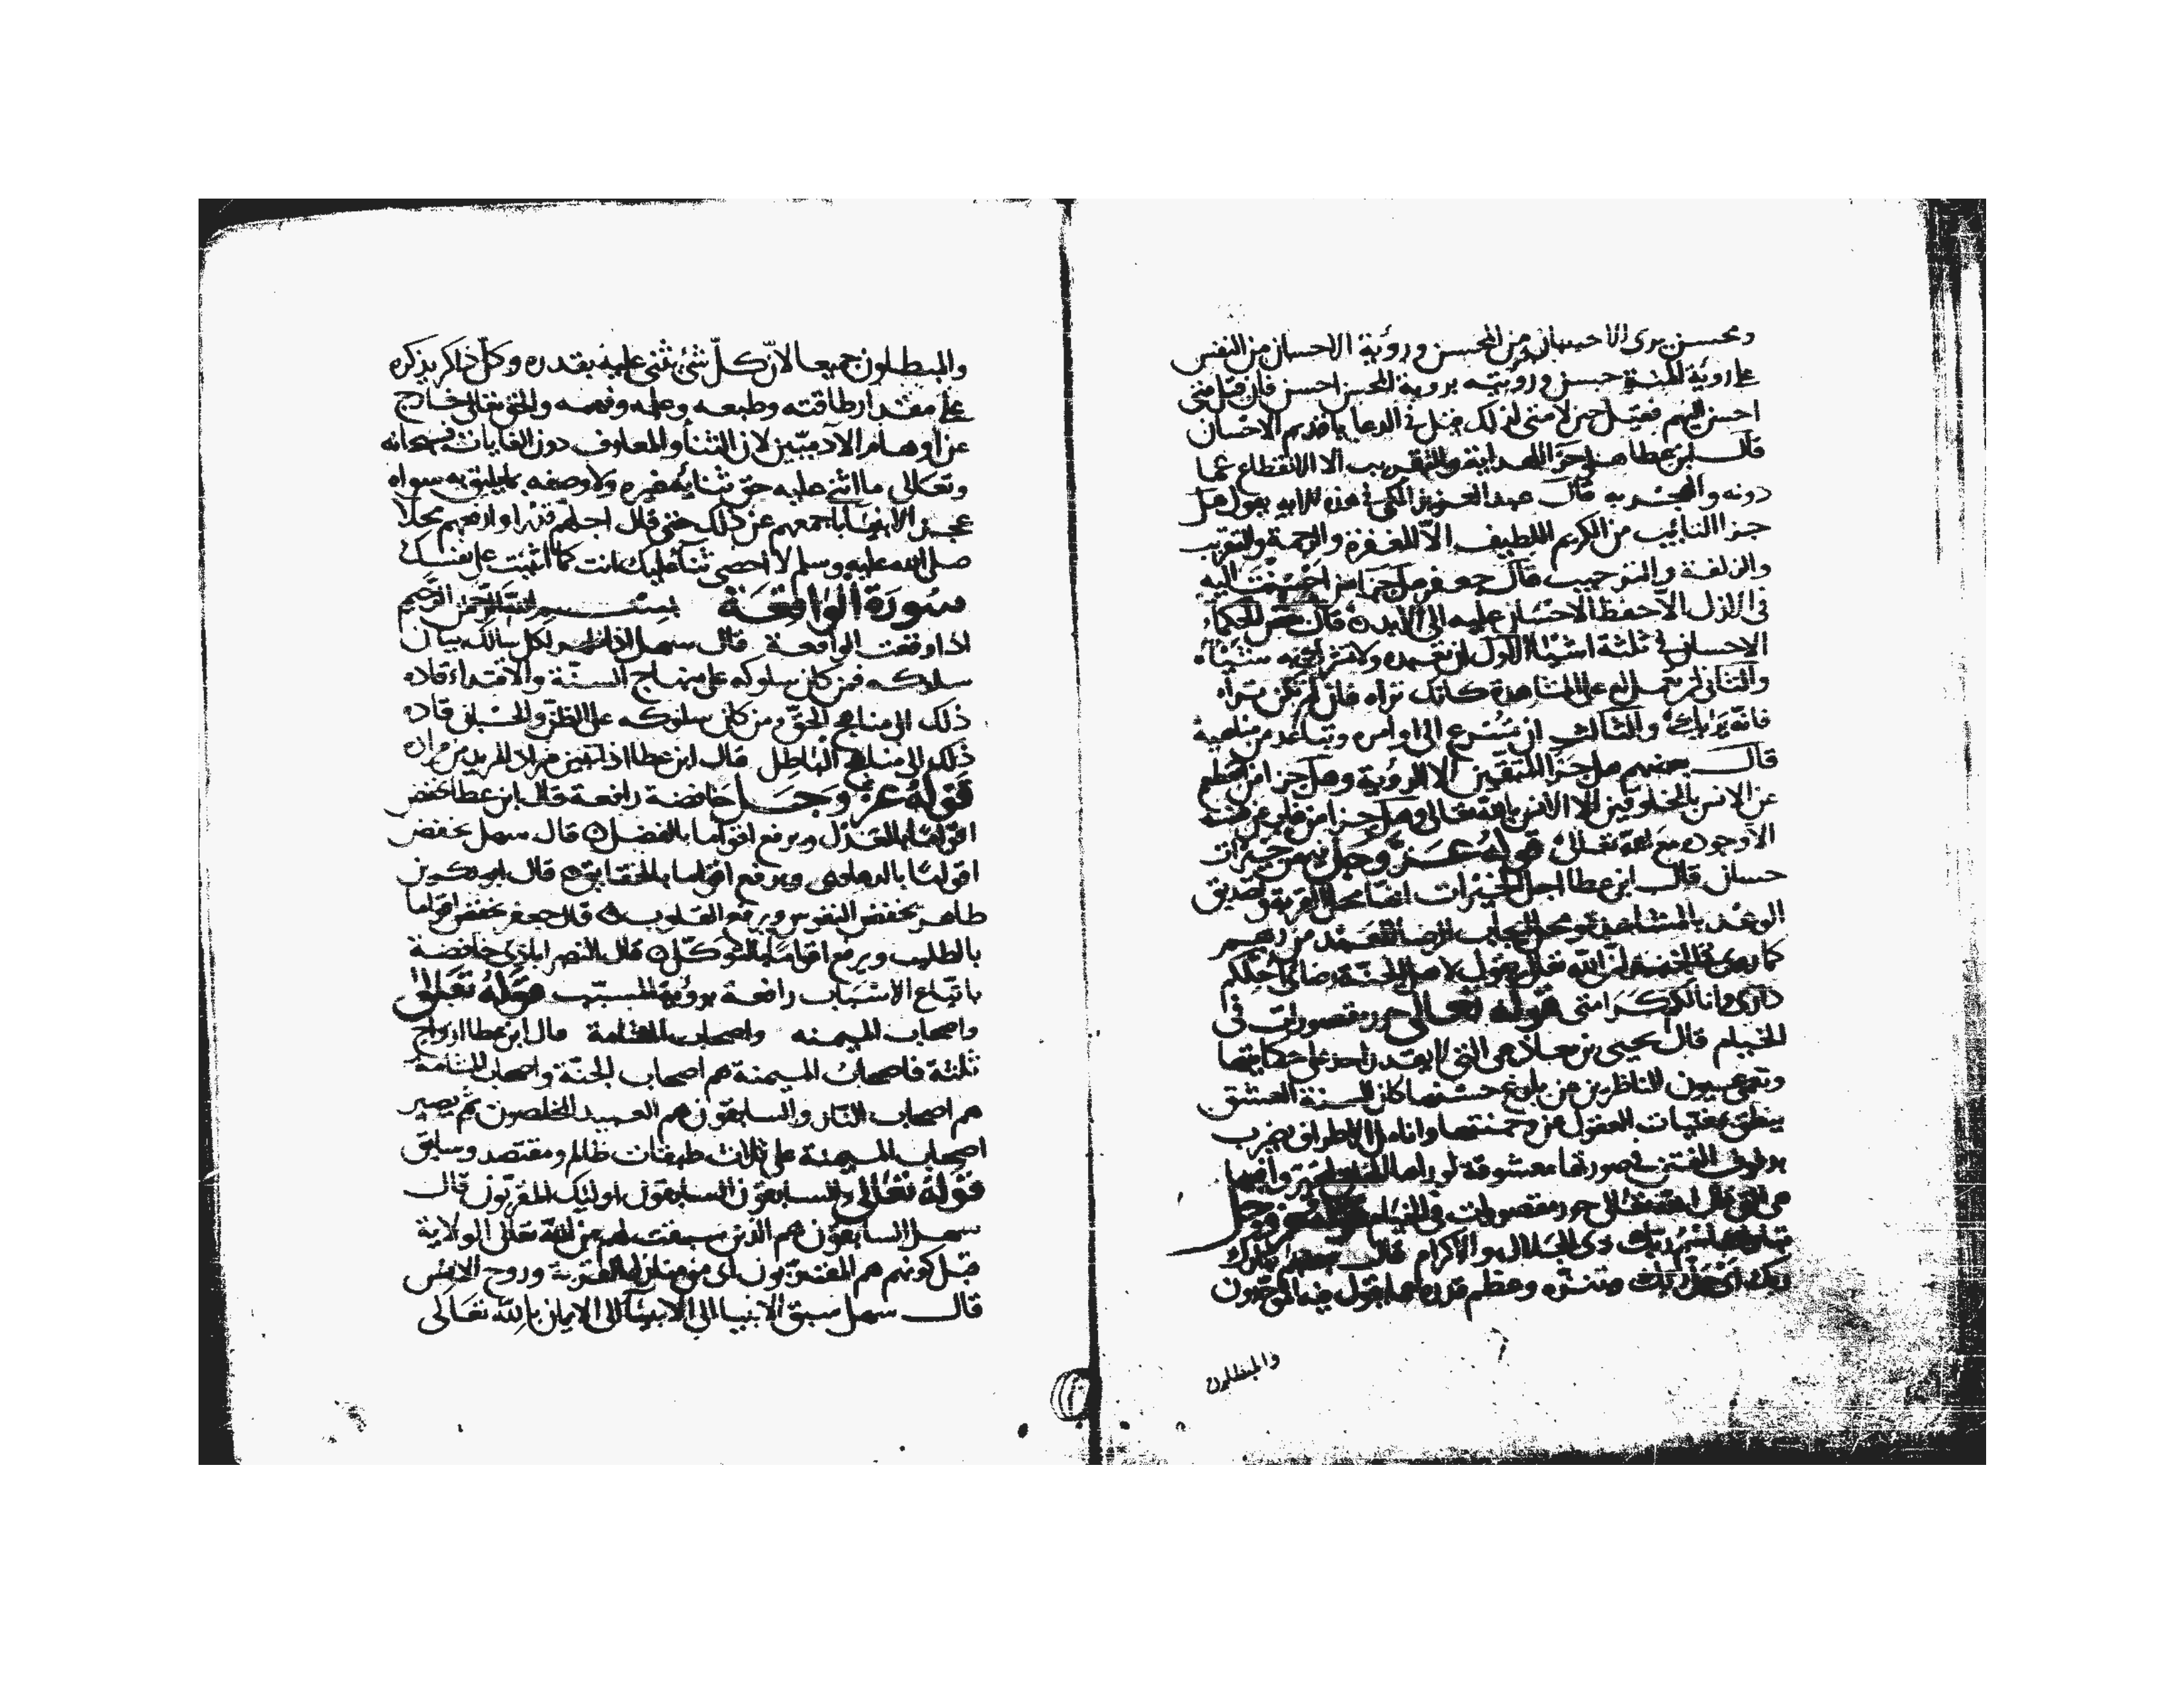 ومحسن يرى الاحسان من المحسن ورؤية الاحسان من النفس
على رؤية المنة حسن ورؤيته برؤية المحسن احسن فان قيل متى
احسن اليهم فقيل حين لا متى لذلك قيل في الدعا يا قديم الاحسان
قال ابن عطا هل جزا الهداية والتقريب الا الانقطاع عما
دونه والهجر به قال عبد العزيز المكي في هذه الاية يقول هل
جزا التائب من الكريم اللطيف الا المغفرة والرحمة والتقريب
والزلفة والترحيب قال جعفر هل جزا من احسنت اليه
في الازل الا حفظ الاحسان عليه الى الابد قال بعض الحكماء
الاحسان في ثلثة اشيا الاول ان تعبده ولا تشرك به شيئا
والثاني ان تعمل له على المشاهدة كانك تراه فان لم تكن تراه
فانه يراك والثالث ان تسرع الى اوامره وتباعد من مناهيه
قال بعضهم هل جزا المتقين الا الرؤية وهل جزا من انقطع
عن الانس بالمخلوقين الا الانس بالله تعالى وهل جزا من
الا وجوده مع الله تعالى قوله عز وجل فيهن خيرات
حسان قال ابن عطا اجل الخيرات انها محل القربة وتصديق
الوعد بالمشاهدة ومحل ايجاب الرضا من ربهم
كما روى ان الله تعالى يقول لاهل الجنة رضائي احلكم
داري وانالكم كرامتي قوله تعالى حور مقصورات في
الخيام قال يحيى بن معاذ هي التي لا يقدر احد على حكايتها
وتعمى عيون الناظرين عن بلوغ حسنها كان السنة العشق
ينطق
هي التي قال الله تعالى حور مقصورات في الخيام قوله عز وجل
تبارك اسم ربك ذي الجلال والاكرام قال
ربك وتنزه وعظم قدره عما يقول فيه الموحدون
والمبطلون
والمبطلون جميعا لان كل شئ يثنى عليه بقدره وكل ذاكر يذكره
على مقدار طاقته وطبعه وعلمه وفهمه والحق تعالى خارج
عن اوهام الآدميين لان الثنا والمعارف دون الغايات فسبحانه
وتعالى ما اثنى عليه حق ثنايه غيره ولا وصفه بما يليق به سواه
عجز الانبيا باجمعهم عن ذلك حتى قال اجلهم قدرا وارفعهم محلا
صلى الله عليه وسلم لا احصي ثنا عليك انت كما اثنيت على نفسك
سورة الواقعة بسم الله الرحمن الرحيم
اذا وقعت الواقعة قال سهل اذا ظهر لكل سالك بيان
سلوكه فمن كان سلوكه على منهاج السنة والاقتداء قاده
ذلك الى مناهج الحق ومن كان سلوكه على الظن والحسبان قاده
ذلك الى مناهج الباطل قال ابن عطا اذا تبين مراد المريد من مراده
قوله عز وجل خافضة رافعة قال ابن عطا يخفض
اقواما بالعدل ويرفع اقواما بالفضل قال سهل يخفض
اقواما بالدعاوي ويرفع اقواما بالحقايق قال ابو بكر بن
طاهر يخفض النفوس ويرفع القلوب قال جعفر يخفض اقواما
بالطلب ويرفع اقواما بالتوكل قال النصراباذي خافضة
باتباع الاسباب رافعة برؤية المسبب قوله تعالى
واصحاب الميمنه واصحاب المشامة قال ابن عطا ازواج
ثلثة فاصحاب الميمنة هم اصحاب الجنة واصحاب المشامة
هم اصحاب النار والسابقون هم العبيد المخلصون ثم يصير
اصحاب الميمنة على ثلاث طبقات ظالم ومقتصد وسابق
قوله تعالى والسابقون السابقون اوليك المقربون قال
سهل السابقون هم الذين سبقت لهم من الله تعالى الولاية
قبل كونهم هم المقربون اى من منازل القربة وروح الانس
قال سهل سبق الانبيا الى الانبيا الى الايمان بالله تعالى